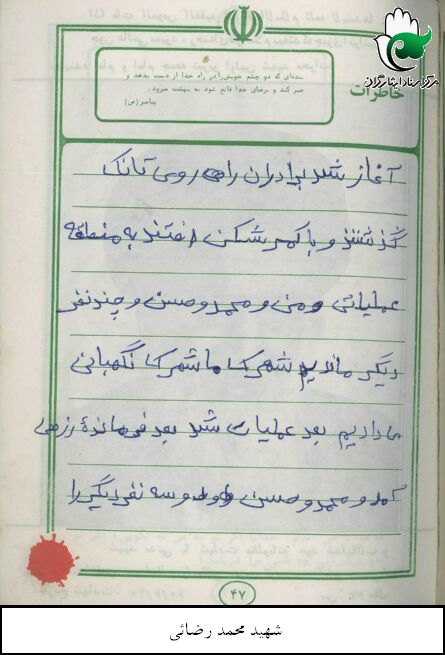 مرکز اسناد ایثارگران
خاطرات
بنده‌ای که دو چشم خویش را در راه خدا از دست بدهد و
صبر کند و برضای خدا قانع شود به بهشت میرود.
پیامبر (ص)
آغاز شد برادران راهی روی تانک
گذشتند و با کمرشکن رفتند به منطقه
عملیاتی و من و محمد و حسن و چند نفر
دیگر ماندیم شهرک ما شهرک نگهبانی
ما دادیم بعد عملیات شد بعد فرمانده
آمد و محمد و حسن و سه نفر دیگر را
۴۷
شهید محمد رضائی